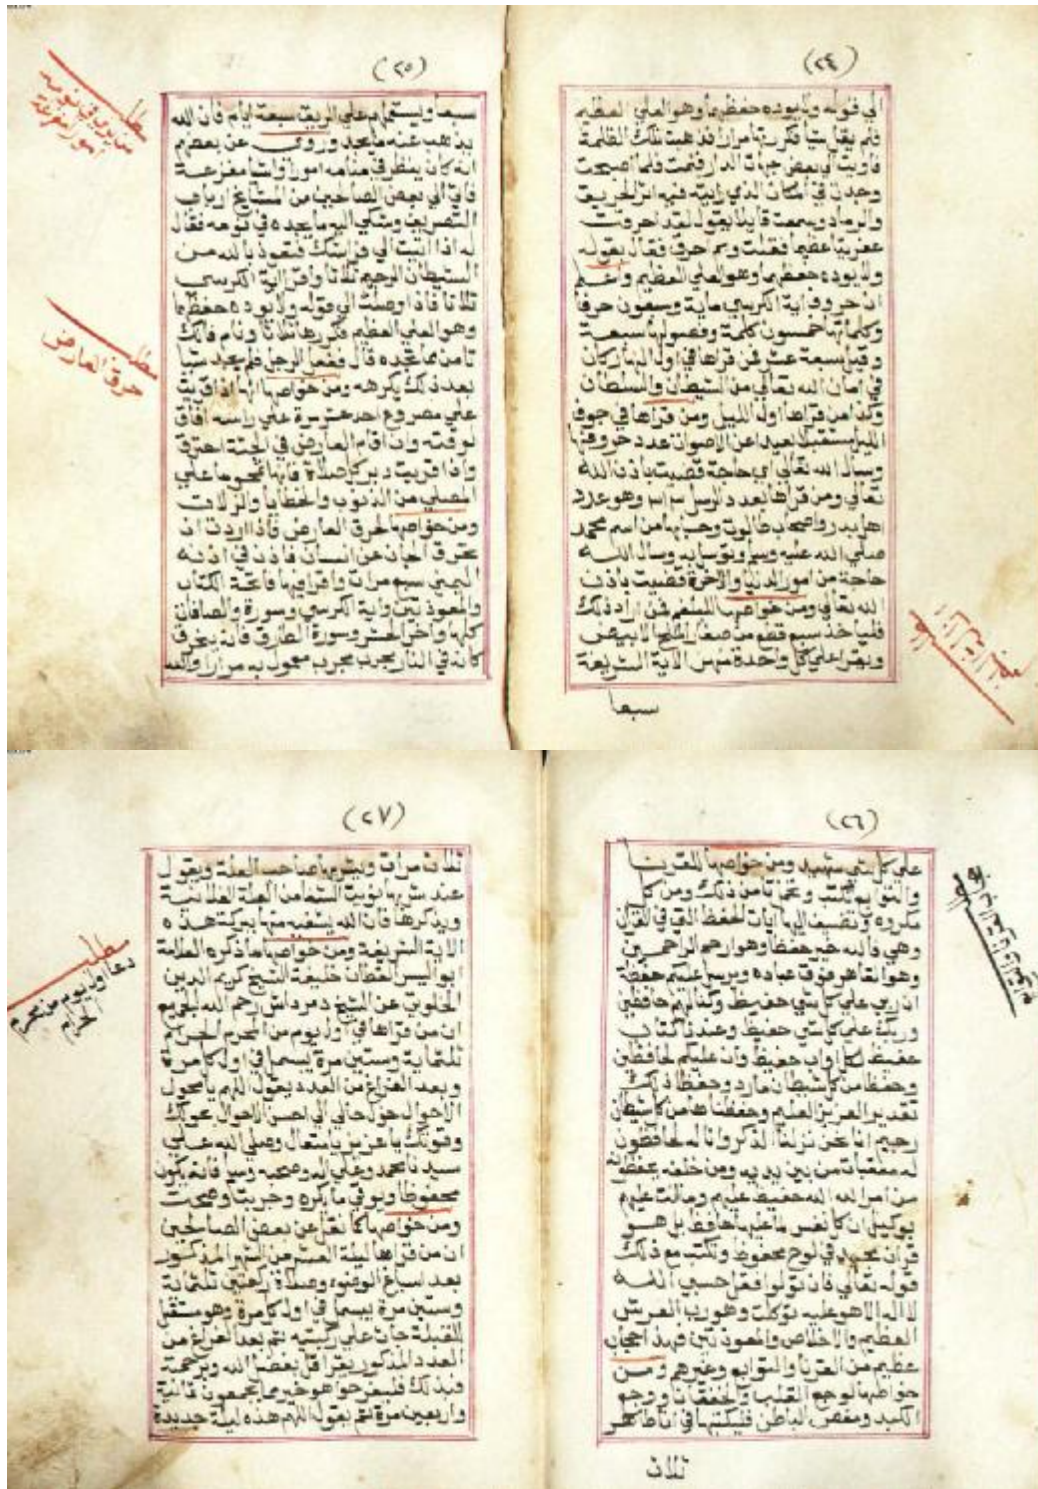 (٢٤)
الي قوله ولا يوده حفظهما وهو العلي العظيم
فلم يقل شيا فكررتها مرارا فذهبت تلك الظلمة
فاويت الي بعض جهات الدار فنمت فلما اصبحت
وجدت في المكان الذي رايته فيه اثر الحريق
والرماد وسمعت قايلا يقول لقد احرقت
عفريتا عظيما فقلت وبم احرق فقال بقوله
ولا يوده حفظهما وهو العلي العظيم واعلم
ان حروف اية الكرسي ماية وسبعون حرفا
وكلماتها خمسون كلمة وفصولها سبعة
وقيل سبعة عشر فمن قراها في اول النهار كان
في امان الله تعالي من الشيطان والسلطان
وكذا من قراها اول الليل ومن قراها في جوف
الليل مستقبلا بعيدا عن الاصوات عدد حروفها
وسال الله تعالي اي حاجة قضيت باذن الله
تعالي ومن قراها بعدد الرسل ٣١٣ وهو عدد
اهل بدر واصحاب طالوت وحسابها من اسم محمد
صلي الله عليه وسلم وتوسل به وسال الله
حاجة من امور الدنيا والاخرة قضيت باذن
الله تعالي ومن خواصها للبلغم فمن اراد ذلك
فلياخذ سبع قطع من صغار الملح الابيض
ويقرا علي كل واحدة منهن الاية الشريفة
سبعا
(٢٥)
سبعا ويستعملهم علي الريق سبعة ايام فان الله
يذهب عنه ما يجد وروي عن بعضهم
انه كان ينظر في منامه امورا واشيا مفزعة
فاتي الي بعض الصالحين من المشايخ ارباب
التصريف وشكي اليه ما يجده في نومه فقال
له اذا اتيت الي فراشك فتعوذ بالله من
الشيطان الرجيم ثلاثا واقرا اية الكرسي
ثلاثا فاذا وصلت الي قوله ولا يوده حفظهما
وهو العلي العظيم فكررها ثلاثا ونام فانك
تامن مما تجده قال ففعل الرجل فلم يجد شيا
بعد ذلك يكرهه ومن خواصها انها اذا قريت
علي مصروع احد عشر مرة علي راسه افاق
لوقته وان اقام العارض في الجثة احترق
واذا قريت دبر كل صلاة فانها تمحو ما علي
المصلي من الذنوب والخطايا والزلات
ومن خواصها لحرق العارض فاذا اردت ان
تحرق الجان عن انسان فاذن في اذنه
اليمني سبع مرات واقرا فيها فاتحة الكتاب
والمعوذتين واية الكرسي وسورة والصافات
كلها واخر الحشر وسورة الطارق فانه يحرق
كانه في النار مجرب مجرب معمول به مرارا والله
مطلب
من يري في نومه
امورا مفزعة
مطلب
حرق العارض
(٢٦)
علي كل شي شهيد ومن خواصها للقرينا
والتوابع تكتب وتحا من ذلك ومن كل
مكروه وتضيف اليها ايات الحفظ التي في القران
وهي فالله خير حفظا وهو ارحم الراحمين
وهو القاهر فوق عباده ويرسل عليكم حفظة
ان ربي علي كل شي حفيظ وكنا لهم حافظين
وربك علي كل شي حفيظ وعندنا كتاب
حفيظ لكل اواب حفيظ وان عليكم لحافظين
وحفظا من كل شيطان مارد وحفظا ذلك
تقدير العزيز العليم وحفظناها من كل شيطان
رجيم انا نحن نزلنا الذكر وانا له لحافظون
له معقبات من بين يديه ومن خلفه يحفظونه
من امر الله الله حفيظ عليهم وما انت عليهم
بوكيل ان كل نفس لما عليها حافظ بل هو
قران مجيد في لوح محفوظ وتكتب مع ذلك
قوله تعالي فان تولوا فقل حسبي الله
لا اله الا هو عليه توكلت وهو رب العرش
العظيم والاخلاص والمعوذتين فهذا حجاب
عظيم من القرنا والتوابع وغيرهم ومن
خواصها لوجع القلب والخفقان ووجع
الكبد ومغص الباطن فليكتبها في انا طاهر
ثلاث
(٢٧)
ثلاث مرات ويشربها صاحب العلة ويقول
عند شربها نويت الشفا من العلة الفلانية
ويذكرها فان الله يشفيه منها ببركة هذه
الاية الشريفة ومن خواصها ما ذكره العلامة
ابو اليسر القطان خليفة الشيخ كريم الدين
الخلوتي عن الشيخ دمرداش رحم الله الجميع
ان من قراها في اول يوم من المحرم الحرام
ثلثماية وستين مرة يبسمل في اول كل مرة
وبعد الفراغ من العدد يقول اللهم يا محول
الاحوال حول حالي الي احسن الاحوال بحولك
وقوتك يا عزيز يا متعال وصلي الله علي
سيدنا محمد وعلي اله وصحبه وسلم فانه يكون
محفوظا ويوقي ما يكره وجربت وصحت
ومن خواصها كما نقل عن بعض الصالحين
ان من قراها ليلة العشر من الشهر المذكور
بعد اسباغ الوضوء وصلاة ركعتين ثلثماية
وستين مرة يبسمل في اول كل مرة وهو مستقبل
للقبلة جاث علي ركبتيه ثم بعد الفراغ من
العدد المذكور يقرا قل بفضل الله وبرحمته
فبذلك فليفرحوا هو خير مما يجمعون ثمانية
واربعين مرة ثم يقول اللهم هذه ليلة جديدة
مطلب
دعا اول يوم من محرم
الحرام